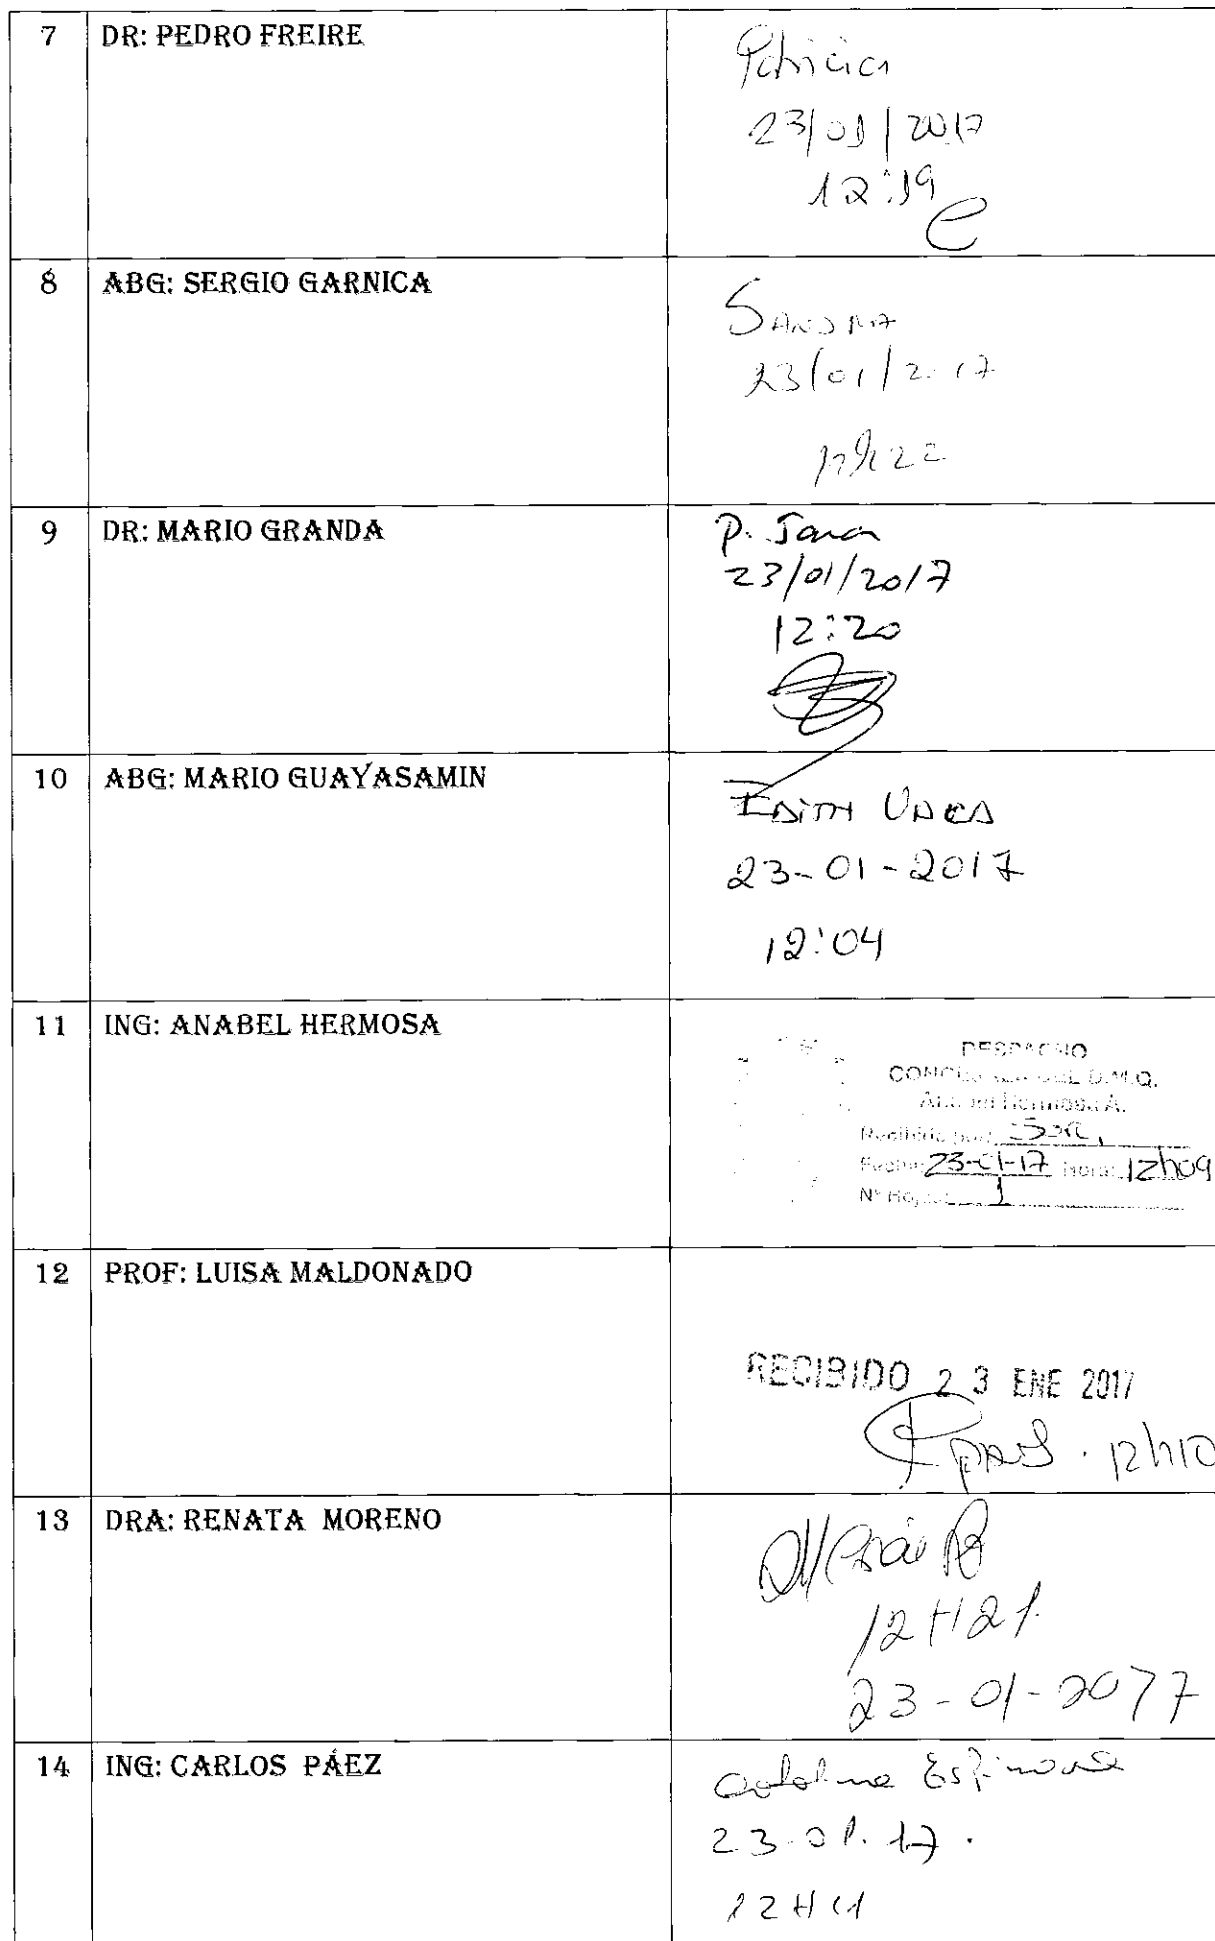 7 DR: PEDRO FREIRE
Patricia
23/01/2017
12:19
8 ABG: SERGIO GARNICA
SANDRA
23/01/2017
12h22
9 DR: MARIO GRANDA
P. Jara
23/01/2017
12:20
10 ABG: MARIO GUAYASAMIN
EDITH VACA
23-01-2017
12:04
11 ING: ANABEL HERMOSA
DESPACHO
CONCEJALA DEL D.M.Q.
Anabel Hermosa A.
Recibido por:
Fecha: 23-01-17 Hora: 12h09
Nº Hojas: 1
12 PROF: LUISA MALDONADO
RECIBIDO 23 ENE 2017
12h10
13 DRA: RENATA MORENO
12H21
23-01-2017
14 ING: CARLOS PÁEZ
Espinosa
23.01.17.
12H11